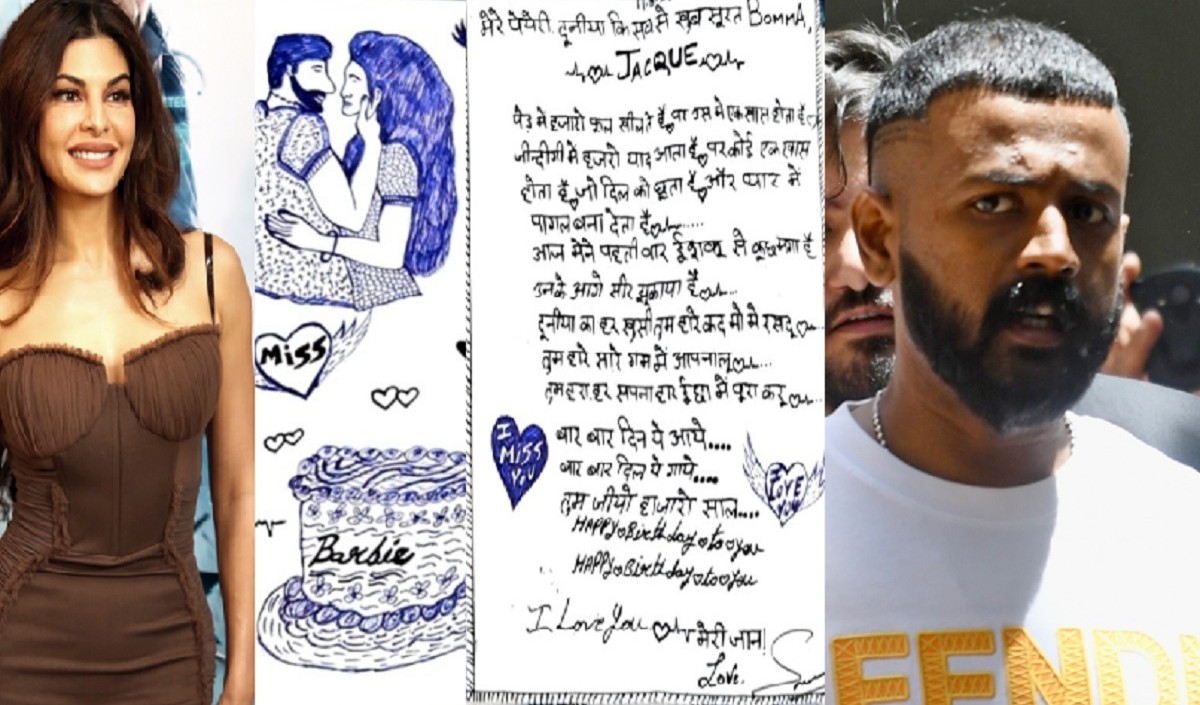 Miss
Barbie
मेरे पेयैरी, दूनीया कि सब से खुब सूरत BOMMA,
JACQUE
पेड़ मे हजारो फुल खीलते है, पर उस मे एक खास होता है
जीन्दीगी मे हजरो याद आता है पर कोई एक खास
होता है जो दिल को छूता है और प्यार में
पागल बना देता है......
आज मेने पहली बार ईशवर से कुछ मंगा है
उनके आगे सीर झुकाया है...
दूनीया का हर खुसी तुम हारे कद मो मे रखदू...
तुम हारे सारे गम में आपनालू...
तुमहरा हर सपना हार ईछा में पूरा करू...
I MISS YOU
बार बार दिन ये आये....
बार बार दिल ये गाये....
तुम जीयो हाजारो साल....
I LOVE YOU
HAPPY Birthday to you
HAPPY Birthday to you
I Love You मेरी जान!
Love.
FENDI